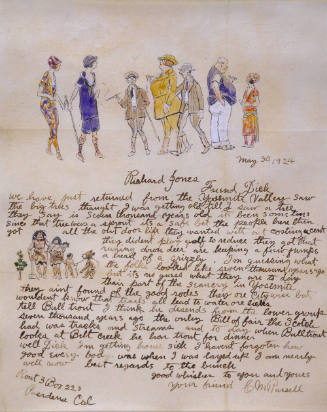 May 30 1924
Richard Jones
Friend Dick
we have just returned from the Yosemite Valley saw
the big trees thought I was getting old till I saw a tree
they say is seven thousand years old its been some time
since that tree was a sprout its a fact the people here then
got all the out door life they wanted with out costumes
they dident play golf to reduce they got that
running down deer or keeping a full jumps
a head of a grizzly Im guessing what
the folks looked like seven thousand years ago
but its no guess what they are to day
their part of the scenery in Yosemite
They aint found of the garbodes they are
wouldent know that snails all beat to
tell Bill trout I think he decends from the lower groups
seven thousand years ago the only Bill of fare the
had was tracks and streams and to day when Bill trout
looks at Bill creek he has trout for dinner
well Dick Im getting home sick I havent forgoten how
good every body was when I was layed up I am nearly
well now best regards to the bunch
good whishes to you and yours
your friend
C M Russell
Rout 3 Box 223
Pasadena Cal